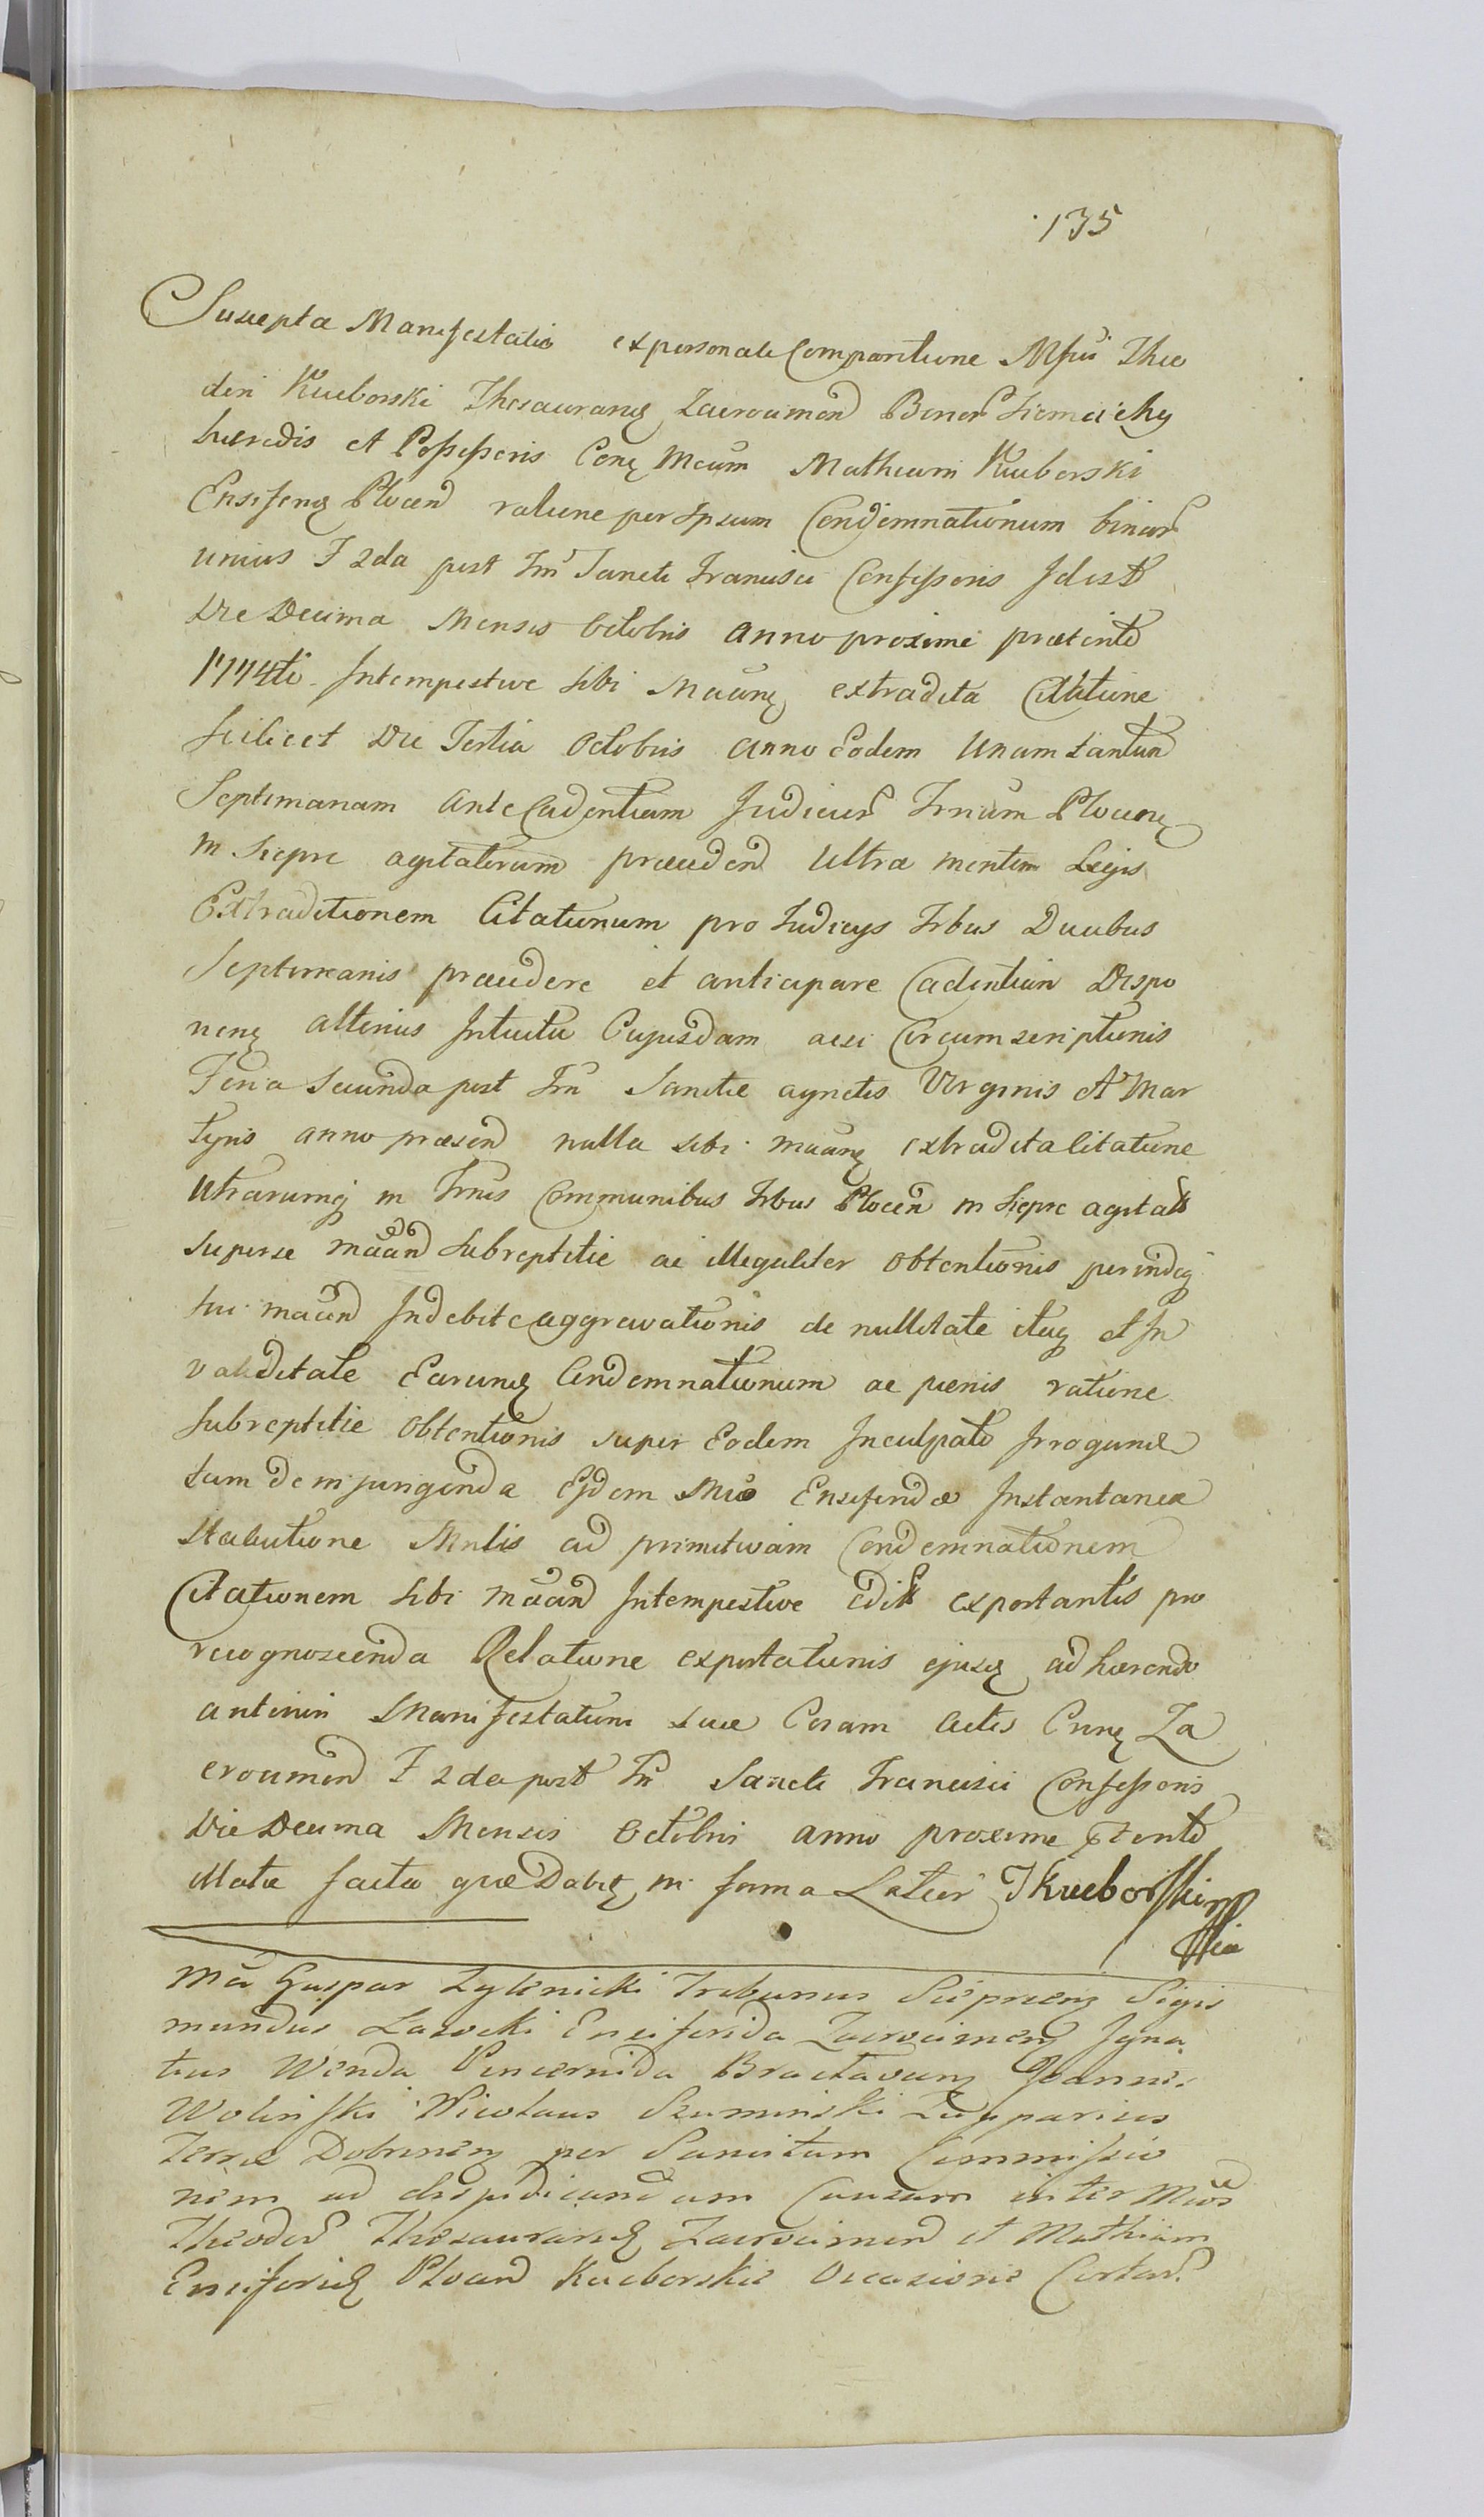 135
Suscepta Manifestatio ex personali Comparitione Mfci Theo
dori Kucborski Thesaurarię Zacrocimen Bonor Siemiichy
hæredis et Possessoris Conę Mcum Mathæum Kucborski
Ensiferię Plocen ratione per Ipsum Condemnationum binar
unius F 2da post Fm Sancti Francisci Confessoris Idest
Die Decima Mensis Octobris anno proxime præterito
1774to Intempestive Sibi Maanę extradita Citatione
Scilicet Die Tertia Octobris anno Eodem Unam tantum
Septimanam ante Cadentiam Judicior Trrium Plocenę
in Sieprc agitatorum præceden Ultra mentem Legis
Extraditionem Citationum pro Judicys Trbus Duabus
Septimanis præcedere et anticipare Cadentiam Dispo
nenę alterius Intuitu Cujusdam acsi Circumscriptionis
Feria Secunda post Fm Sanctæ agnetis Virginis et Mar
tyris anno præsen nulla sibi maanę extradita Citatione
Utrarumq in Trnis Communibus Trbus Plocen in Sieprc agitats
super se maan Subreptitie ac illegaliter obtentionis perindeq
sui maan Indebite aggravationis de nullitate itaq et In
validitate Earunę Condemnationum ac pænis ratione
Subreptitie obtentionis super Eodem Inculpato Irrogand
tum de injungenda Ejdem Mco Ensiferidæ Instantanea
Statutione Mnlis ad primitivam Condemnationem
Citationem Sibi maan Intempestive Edit exportantis pro
recognoscenda Relatione exportationis ejusę adhærendo
anteriori Manifestationi suæ Coram Actis Crnę Za
crocimen F 2da post Fm Sancti Francisci Confessoris
Die Decima Mensis Octobris anno proxime pterito
illatæ facta quæ Dabitę in forma Latior TKucborski mp
Mci Gaspar Zglenicki Tribunus Sieprcenę Sigis
mundus Lasocki Ensiferida Zacrocimenę Igna
tius Wenda Pincernida Braclavienę Joannes
Wolinski Nicolaus Szuminski Zupparius
Terræ Dobrinenę per Sancitam Commissio
nem ad disjudicandam Causam inter Mcos
Theodor Thesaurarię Zacrocimen et Mathiam
Ensiferię Plocen Kucborskie Occasione Certar